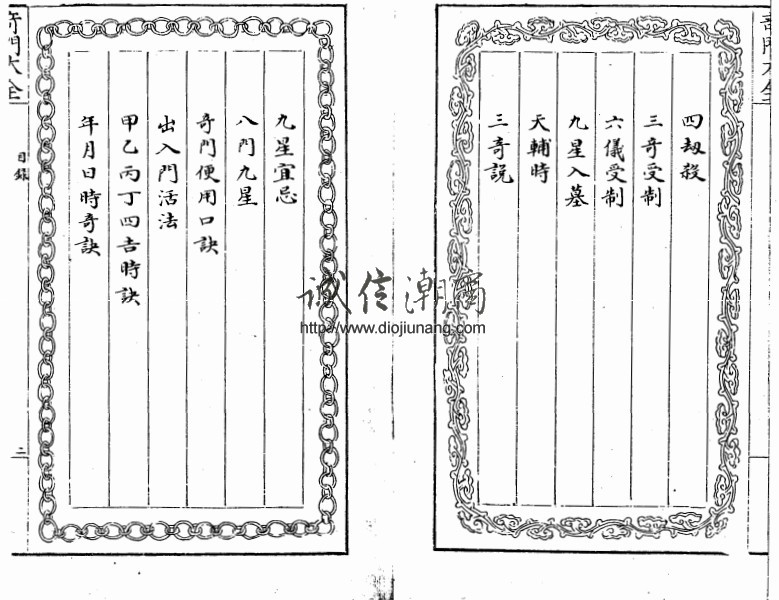 四刼殺
三奇受制
六儀受制
九星入墓
天輔時
三奇説
九星宜忌
八門九星
奇門便用口訣
出入門活法
甲乙丙丁四吉時訣
年月日時奇訣
奇門大全
目錄
二
诚信潮阁
http://www.diojiunang.com